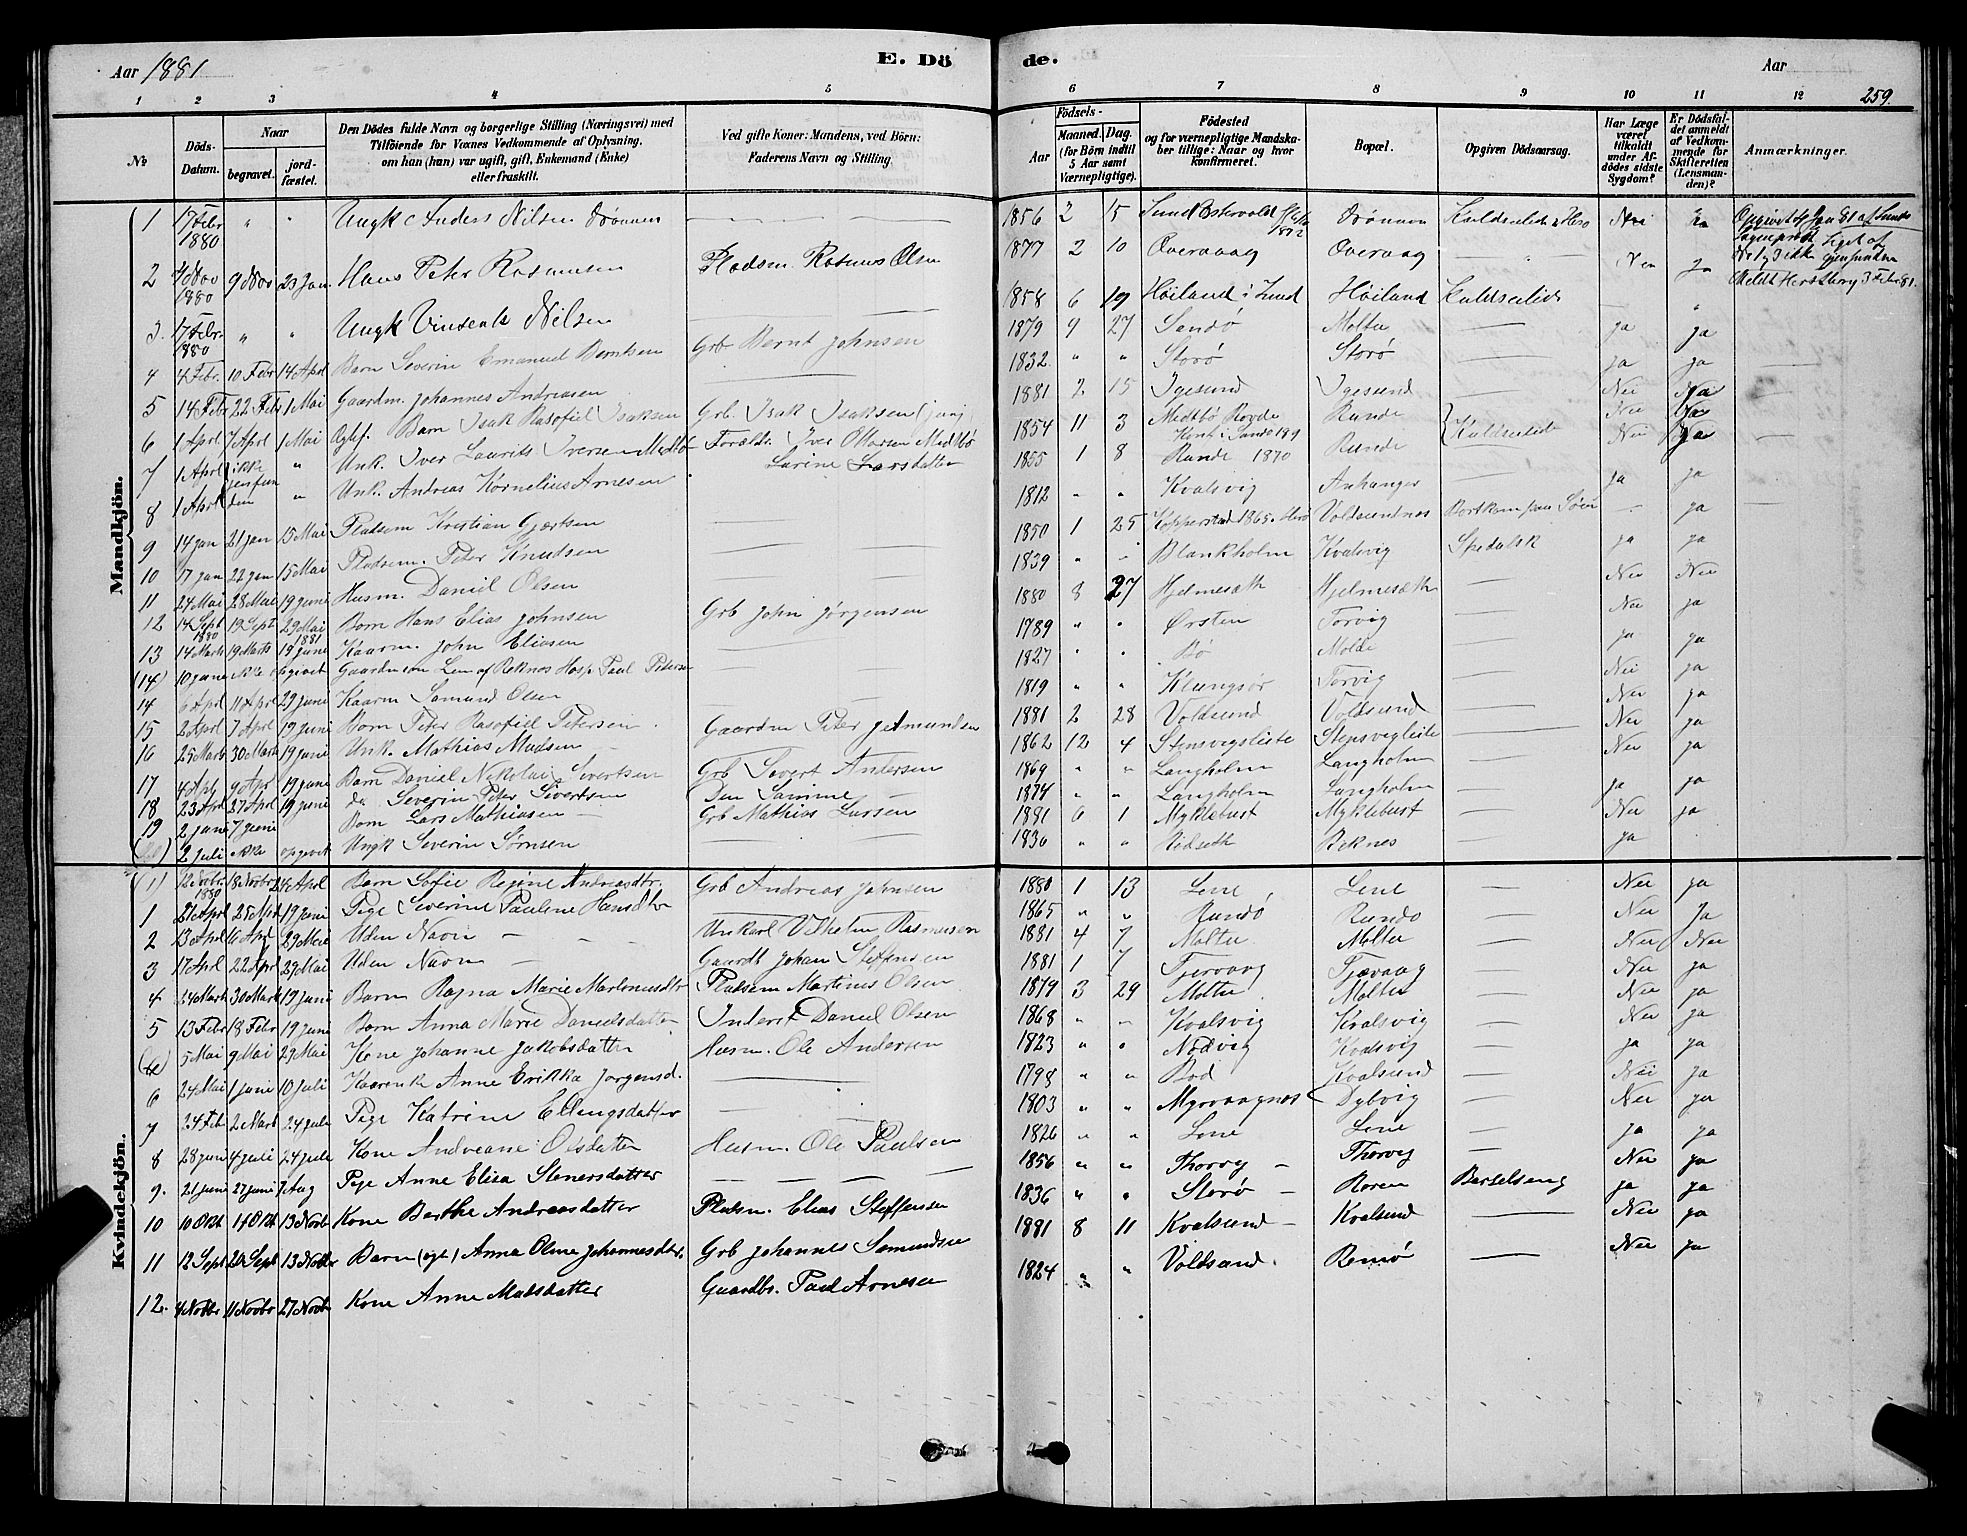 Aar 1881
E. Dö
de.
Aar
1 2 3 4 5
6 7 8 9 10 11 12 259.
No
Döds-Datum.
Naar
begravet.
jord-fæstet.
Den Dödes fulde Navn og borgerlige Stilling (Næringsvei) med
Tilföiende for Voxnes Vedkommende af Oplysning,
om han (han) var ugift, gift, Enkemand (Enke)
eller fraskilt.
Ved gifte Koner: Mandens, ved Børn:
Faderens Navn og Stilling.
Födsels-
Aar
Maaned. Dag.
(for Börn indtil
5 Aar samt
Værnepligtige).
Födested
og for værnepligtige Mandska-
ber tillige: Naar og hvor
konfirmeret.
Bopæl.
Opgiven Dödsaarsag.
Har Læge
været
tilkaldt
under Af-
dödes sidste
Sygdom?
Er Dödsfal-
det anmeldt
af Vedkom-
mende for
Skifteretten
(Lensman-
den)?
Anmærkninger.
Mandkjön.
1 17 Febr 1880 " " Ungk Anders Nilsen Drönnen
2 4 Nov 1880 9 Nov 23 Jan Hans Peter Rasmusen Pladsm. Rasmus Olsen
3. 17 Febr. 1880 " " Ungk Vinsents Nilsen
4 4 Febr. 10 Febr 14 Apl Barn Severin Emanuel Berntsen Grb Bernt Johnsen
5 14 Febr 22 Febr 1 Mai Gaardm. Johannes Andreasen
6 1 Aprl 7 Aprl 1 Mai Ogkf. Barn Isak Rasofiel Isaksen Grb. Isak Isaksen (jun)
7 1 Aprl ikke gjenfun " Unk. Iver Laurits Iversen Medbö Foreldr. Iver Ottesen Medbö
8 1 Aprl den " Unk. Andreas Kornelius Arnesen Larine Larsdatter
9 14 Jan 21 Jan 15 Mai Pladsm Kristian Gjertsen
10 17 jan 22 jan 15 Mai Pladsem. Peter Knudsen
11 24 Mai 28 Mai 19 juni Husm. Daniel Olsen
12 14 Sept 1880 19 Sept 29 Mai 1881 Barn Hans Elias Johnsen Grb John Jörgensen
13 14 Marts 19 Marts 19 juni Kaarm. John Eliasen
(14) 10 juni ikke opgivet Gaardmann Lem af Reknes Hosp Paul Pedersen
14 6 Apl 11 Aprl 29 juni Kaarm Samund Olsen
15 2 Aprl 7 Aprl 19 juni Barn Peter Rasofiel Petersen Gaardm Peter Jetmundsen
16 25 Mart 30 Mark 19 juni Unk. Mathias Madsen
17 4 Apl 9 Apr 19 juni Barn Daniel Nikolai Sivertsen Grb Sivert Andersen
18 23 Apl 27 Apl 19 juni do Severin Peter Sivertsen Den Samme
19 2 juni 7 juni Barn Lars Mathiasen Grb Mathias Larsen
2 Juli ikke opgivet Ungk Severin Sörnsen
Kvindekjön.
(1) 12 Novbr 1880 18 Novbr 24 April Barn Sofie Regine Andreasdtr. Grb Andreas Johnsen
1 21 Aprl 25 19 juni Pige Severine Pauline Hansdtr
2 13 Aprl 16 Apl 29 Mai Uden Navn Unkarl Vilhelm Rasmusen
3 17 Aprl 22 Apl 29 Mai Uden Navn Gaardb Johan Steffensen
4 24 Mark 30 Mark 19 juni Barn Ragna Marie Martinusdtr Pladsem Martinus Olsen
5 13 Febr 18 Febr 19 Juni Barn Anna Marie Danielsdatter Inderst Daniel Olsen
5 Mai 9 Mai 29 Mai Kone Johanne Jakobsdatter Husm. Ole Andersen
6 24 Mai 1 juni 10 juli Kaarenk Anne Erikka Jorgensd.
7 24 Febr 2 Mark 24 juli Pige Katrine Ellingsdatter
8 28 juni 4 juli 24 juli Kone Andreane Olsdatter Husm. Ole Paulsen
9. 21 juni 27 juni 7 Aug Pige Anne Elisa Stenersdatter
10 10 Okt 17 Okt 13 Novb Kone Berthe Andreasdatter Pladsm. Elias Steffensen
11 12 Sept 20 Sept 13 Novbr Barn (ogt) Anna Oline Johannesdtr. Grb Johannes Samundsen
12. 4 Novbr 11 Novbr 27 Novb Kone Anne Madsdatter Gaardbr. Paul Arnesen
1856 2 15 Sund Drönnen Kuldseilede Herö Nei Ja Opgivet
1877 2 10 Overvaag Overvaag Nei Ja ikke gjenfunden
1858 6 19 Höiland i Sund Höiland Kuldseilede " Meldt Hersberg 3 Febr 81.
1879 9 27 Sandö Moltu ja ja
1832 " " Storö Storö ja ja
1881 2 15 Igesund Igesund Nei Nei
1854 11 3 Medbö Rovde Runde Nei Ja
1855 1 8 Runde 1870 Runde Kuldseilede Nei Ja
1812 " " Kvalsvig Anhanger ja ja
1850 1 25 Kopperstad 1865 Herö Voldsundnes Bortkom paa Söen - ja
1839 " " Blankholm Kvalsvig Spedalsk ja ja
1880 8 27 Hjelmesæth Hjelmesæth Nei Nei
1789 " " Ørsten Torvig Nei ja
1827 " " Bö Molde ja ja
1819 " " Klungsör Torvig Nei ja
1881 2 28 Voldsund Voldsund Nei ja
1862 12 4 Stensvigsleite Stensvegleite Nei ja
1869 " " Langholm Langholm Nei ja
1874 " " Langholm Langholm ja ja
1881 6 1 Myklebust Myklebust Nei ja
1830 " " Rödseth Reknes ja
1880 1 13 Leine Leine Nei ja
1865 " " Rundö Rundö Nei Ja
1881 4 7 Moltu Moltu Nei Nei
1881 1 7 Tjervaag Tjævaag Nei ja
1879 3 29 Moltu Moltu Nei ja
1868 " " Kvalsvig Kvalsvig Nei ja
1823 " " Nödvig Kvalsvig ja ja
1798 " " Bod Kvalsund Nei ja
1803 " " Myrvaagnes Dybvig Nei ja
1826 " " Leine Leine ja ja
1856 " " Thorvig Thorvig Nei ja
1836 " " Storö Roren Barselseng ja ja
1881 8 11 Kvalsund Kvalsund Nei ja
1824 " " Voldsund. Remö Nei ja